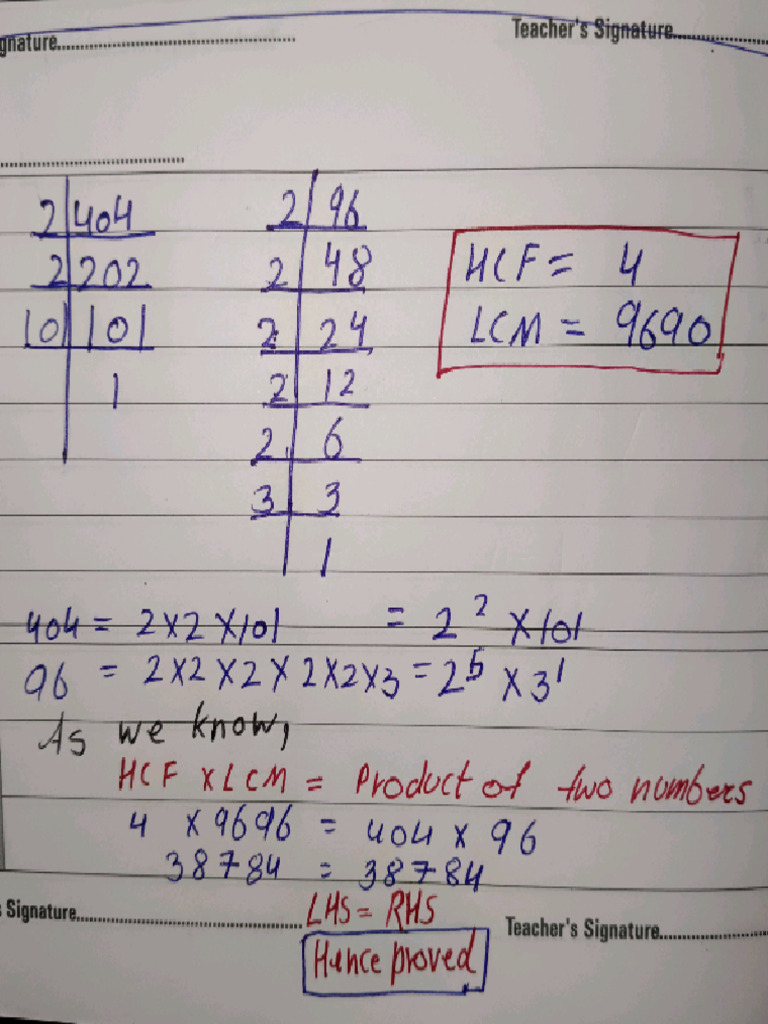 gnature
Teacher's Signature
2 404
2 202
101 101
1
2 96
2 48
2 24
2 12
2 6
3 3
1
HCF = 4
LCM = 9690
404 = 2×2×101 = 2² ×101
96 = 2×2×2×2×2×3 = 2⁵ ×3¹
As we know,
HCF × LCM = Product of two numbers
4 × 9696 = 404 × 96
38784 = 38784
s Signature
LHS = RHS
Teacher's Signature
Hence proved